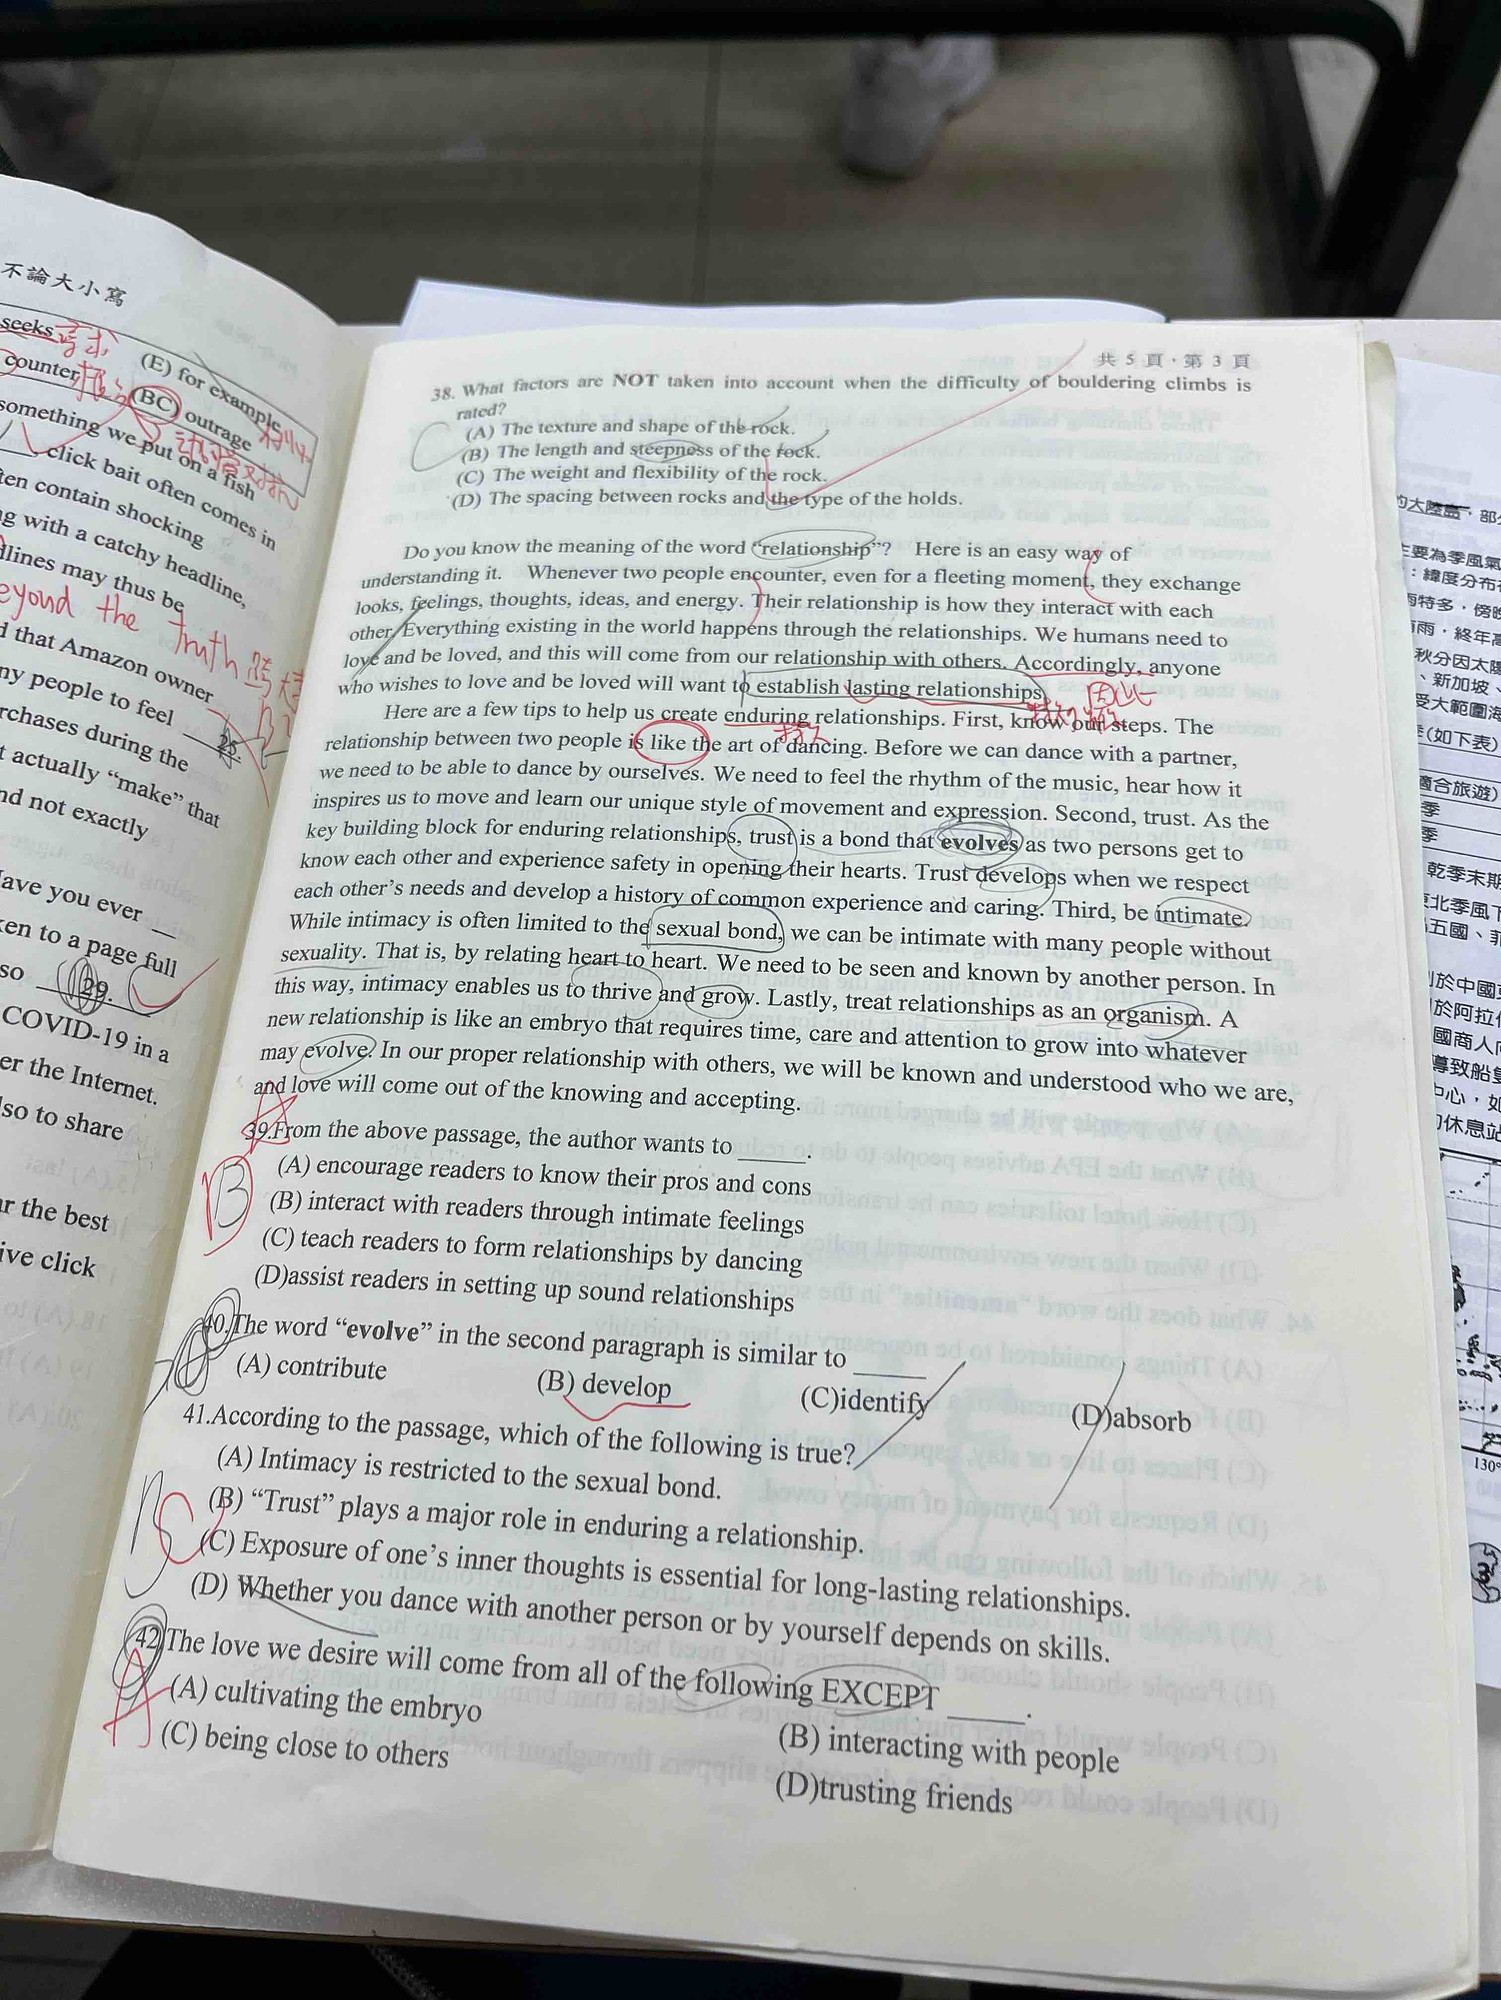 不論大小寫
seeks 尋求 (E) for example
counter (BC) outrage
something we put on a fish
click bait often comes in
ten contain shocking
g with a catchy headline,
dlines may thus be
eyond the truth
d that Amazon owner
ny people to feel 25.
rchases during the
t actually “make” that
nd not exactly
Have you ever
ken to a page full
so 29.
COVID-19 in a
er the Internet.
lso to share
ar the best
ive click
共 5 頁．第 3 頁
38. What factors are NOT taken into account when the difficulty of bouldering climbs is
rated?
(A) The texture and shape of the rock.
C (B) The length and steepness of the rock.
(C) The weight and flexibility of the rock.
(D) The spacing between rocks and the type of the holds.
Do you know the meaning of the word “relationship”? Here is an easy way of
understanding it. Whenever two people encounter, even for a fleeting moment, they exchange
looks, feelings, thoughts, ideas, and energy. Their relationship is how they interact with each
other. Everything existing in the world happens through the relationships. We humans need to
love and be loved, and this will come from our relationship with others. Accordingly, anyone
who wishes to love and be loved will want to establish lasting relationships. 因此
Here are a few tips to help us create enduring relationships. First, know our steps. The
relationship between two people is like the art of dancing. Before we can dance with a partner,
we need to be able to dance by ourselves. We need to feel the rhythm of the music, hear how it
inspires us to move and learn our unique style of movement and expression. Second, trust. As the
key building block for enduring relationships, trust is a bond that evolves as two persons get to
know each other and experience safety in opening their hearts. Trust develops when we respect
each other’s needs and develop a history of common experience and caring. Third, be intimate.
While intimacy is often limited to the sexual bond, we can be intimate with many people without
sexuality. That is, by relating heart to heart. We need to be seen and known by another person. In
this way, intimacy enables us to thrive and grow. Lastly, treat relationships as an organism. A
new relationship is like an embryo that requires time, care and attention to grow into whatever
may evolve. In our proper relationship with others, we will be known and understood who we are,
and love will come out of the knowing and accepting.
39.From the above passage, the author wants to ______.
(A) encourage readers to know their pros and cons
B (B) interact with readers through intimate feelings
(C) teach readers to form relationships by dancing
(D)assist readers in setting up sound relationships
40.The word “evolve” in the second paragraph is similar to ______
(A) contribute (B) develop (C)identify (D)absorb
41.According to the passage, which of the following is true?
(A) Intimacy is restricted to the sexual bond.
(B) “Trust” plays a major role in enduring a relationship.
(C) Exposure of one’s inner thoughts is essential for long-lasting relationships.
(D) Whether you dance with another person or by yourself depends on skills.
42.The love we desire will come from all of the following EXCEPT ______.
A (A) cultivating the embryo (B) interacting with people
(C) being close to others (D)trusting friends
的大陸島，部分
主要為季風氣
：緯度分布
雨特多，傍晚
雨，終年高
秋分因太陽
、新加坡、
受大範圍海
(如下表)
適合旅遊)
季
季
乾季末期
北季風下
五國、菲
於中國
於阿拉伯
國商人
導致船隻
中心，如
休息站
130°